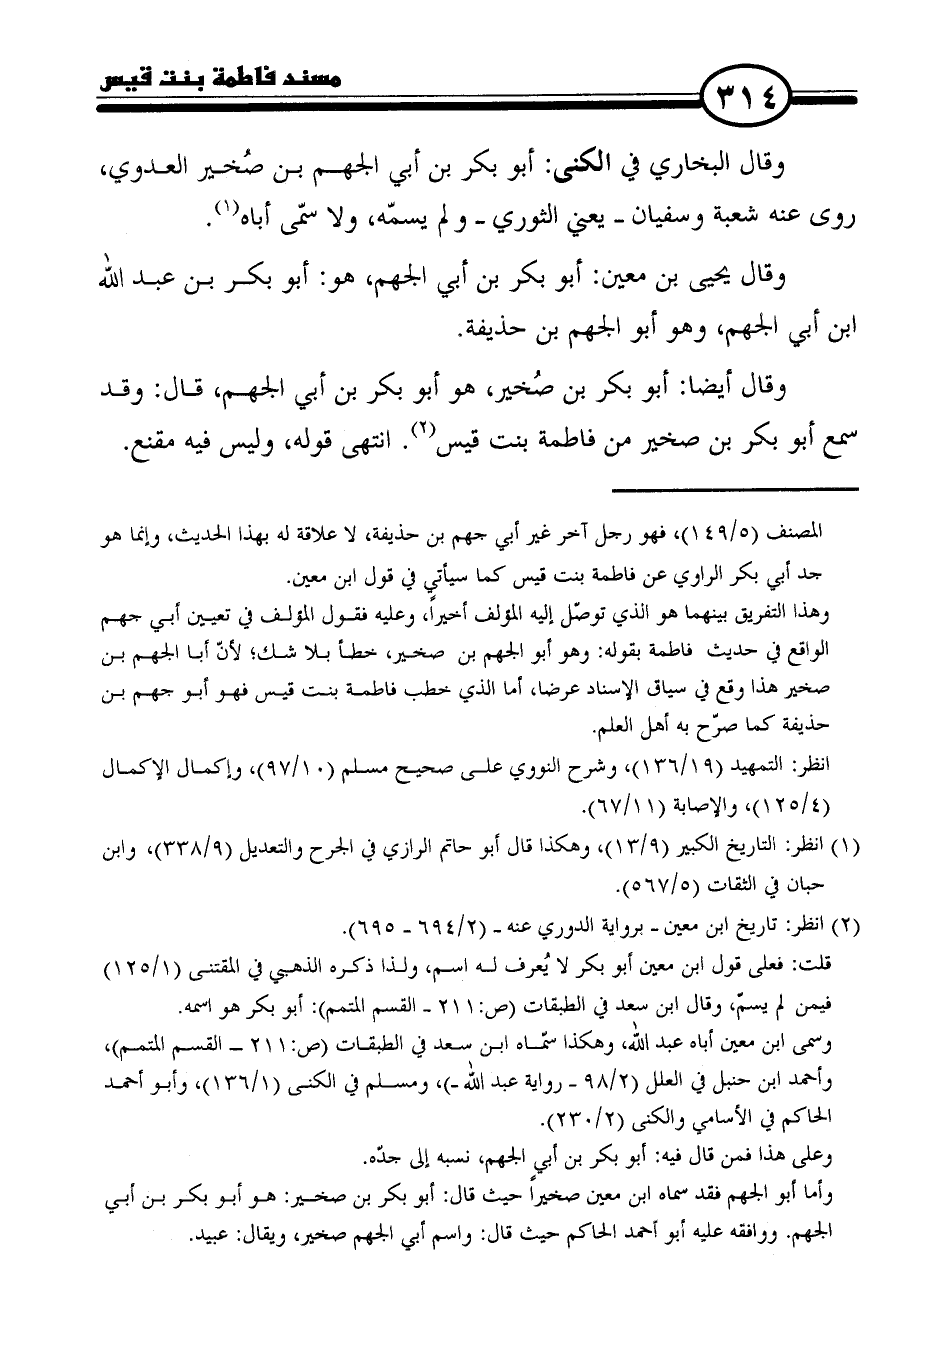 مسند فاطمة بنت قيس
٣١٤
وقال البخاري في الكنى: أبو بكر بن أبي الجهم بن صُخير العدوي،
روى عنه شعبة وسفيان ـ يعني الثوري ـ و لم يسمّه، ولا سمّى أباه(١).
وقال يحيى بن معين: أبو بكر بن أبي الجهم، هو: أبو بكر بن عبد الله
ابن أبي الجهم، وهو أبو الجهم بن حذيفة.
وقال أيضا: أبو بكر بن صُخير، هو أبو بكر بن أبي الجهم، قال: وقد
سمع أبو بكر بن صخير من فاطمة بنت قيس(٢). انتهى قوله، وليس فيه مقنع.
المصنف (١٤٩/٥)، فهو رجل آخر غير أبي جهم بن حذيفة، لا علاقة له بهذا الحديث، وإنما هو
جد أبي بكر الراوي عن فاطمة بنت قيس كما سيأتي في قول ابن معين.
وهذا التفريق بينهما هو الذي توصّل إليه المؤلف أخيراً، وعليه فقول المؤلف في تعيين أبي جهم
الواقع في حديث فاطمة بقوله: وهو أبو الجهم بن صخير، خطأ بلا شك؛ لأنّ أبا الجهم بن
صخير هذا وقع في سياق الإسناد عرضا، أما الذي خطب فاطمة بنت قيس فهو أبو جهم بن
حذيفة كما صرّح به أهل العلم.
انظر: التمهيد (١٣٦/١٩)، وشرح النووي على صحيح مسلم (٩٧/١٠)، وإكمال الإكمال
(١٢٥/٤)، والإصابة (٦٧/١١).
(١) انظر: التاريخ الكبير (١٣/٩)، وهكذا قال أبو حاتم الرازي في الجرح والتعديل (٣٣٨/٩)، وابن
حبان في الثقات (٥٦٧/٥).
(٢) انظر: تاريخ ابن معين ـ برواية الدوري عنه ـ (٦٩٤/٢ ـ ٦٩٥).
قلت: فعلى قول ابن معين أبو بكر لا يُعرف له اسم، ولذا ذكره الذهبي في المقتنى (١٢٥/١)
فيمن لم يسمّ، وقال ابن سعد في الطبقات (ص:٢١١ ـ القسم المتمم): أبو بكر هو اسمه.
وسمى ابن معين أباه عبد الله، وهكذا سمّاه ابن سعد في الطبقات (ص:٢١١ ـ القسم المتمم)،
وأحمد ابن حنبل في العلل (٩٨/٢ ـ رواية عبد الله ـ)، ومسلم في الكنى (١٣٦/١)، وأبو أحمد
الحاكم في الأسامي والكنى (٢٣٠/٢).
وعلى هذا فمن قال فيه: أبو بكر بن أبي الجهم، نسبه إلى جدّه.
وأما أبو الجهم فقد سماه ابن معين صخيراً حيث قال: أبو بكر بن صخير: هو أبو بكر بن أبي
الجهم. ووافقه عليه أبو أحمد الحاكم حيث قال: واسم أبي الجهم صخير، ويقال: عبيد.